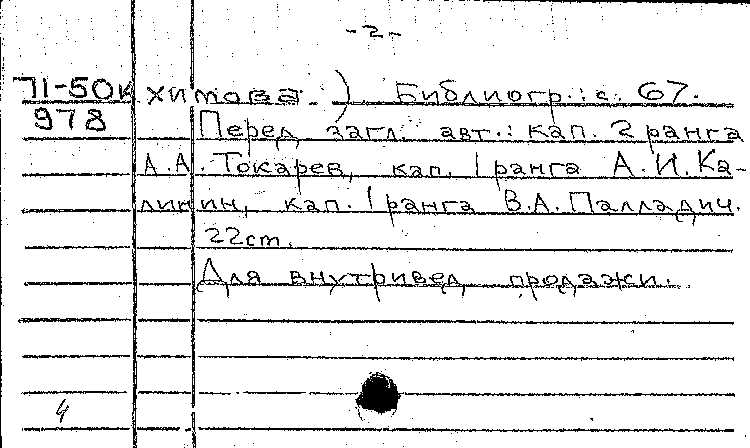 -2-
71-50к химова.) Библиогр.: с. 67.
978 Перед загл. авт.: кап. 2 ранга
А.А. Токарев, кап. 1 ранга А.И. Ка-
линин, кап. 1 ранга В.А. Палладич.
22cm.
Для внутривед. продажи.
4